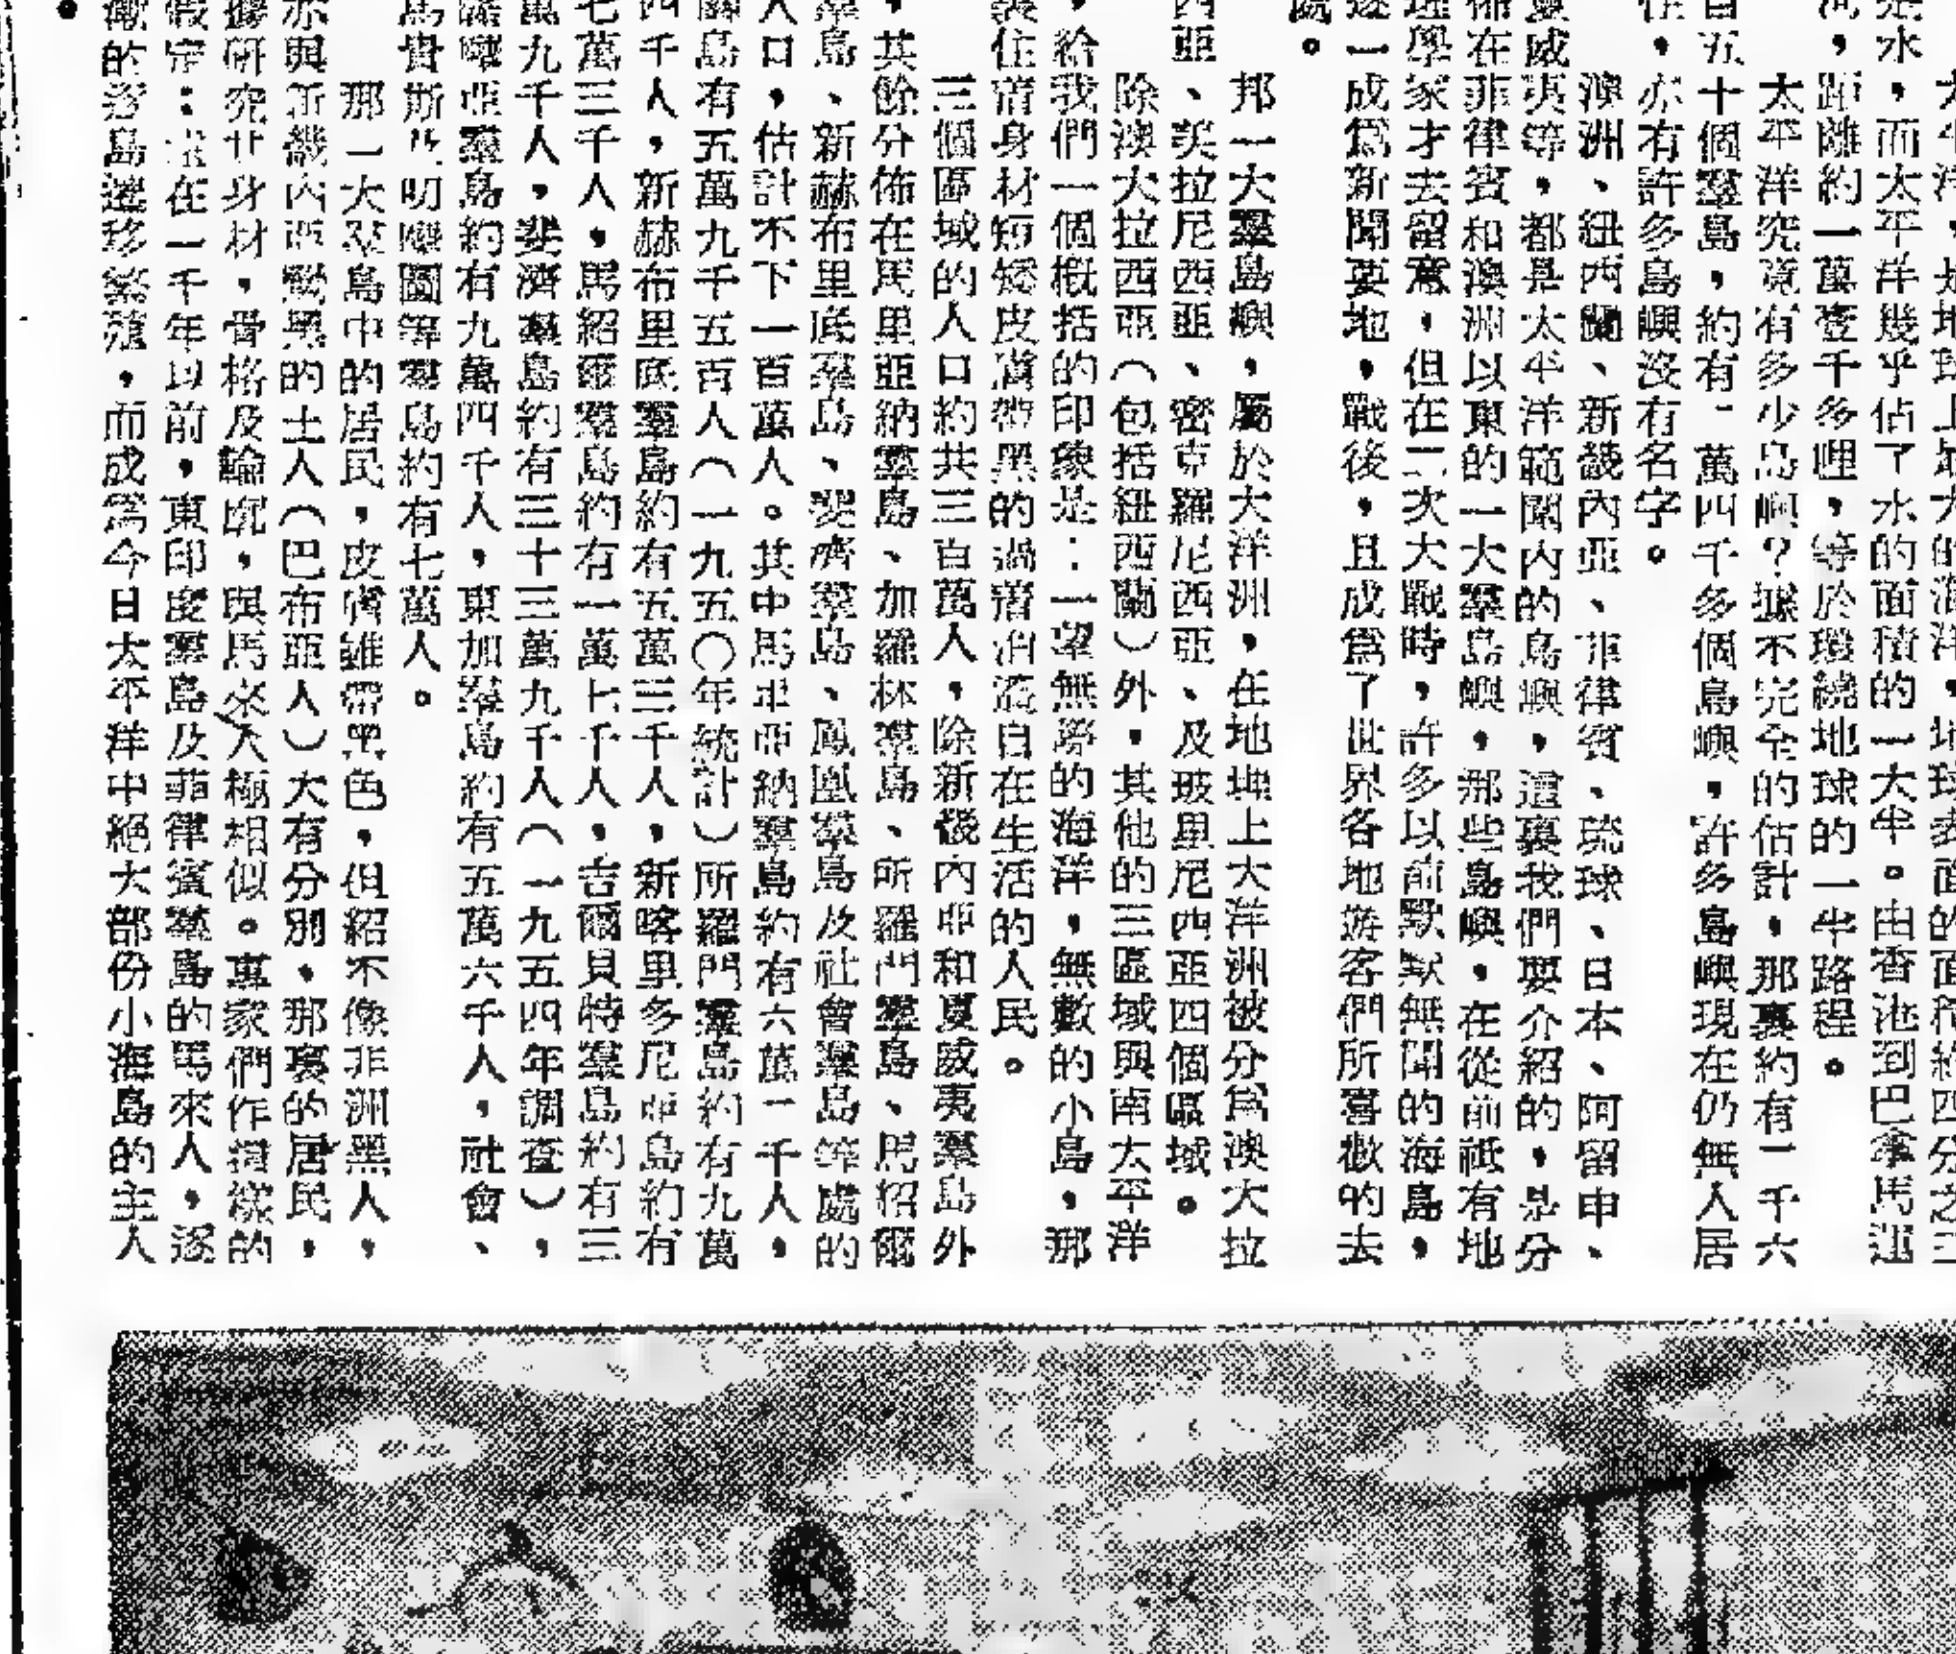 太平洋，是地球上最大的海洋，地球表面的面積約四分之三
是水，而太平洋幾乎佔了水的面積的一大半。由香港到巴拿馬運
河，距離約一萬壹千多哩，等於環繞地球的一半路程。
太平洋究竟有多少島嶼？據不完全的估計，那裏約有一千六
百五十個羣島，約有一萬四千多個島嶼，許多島嶼現在仍無人居
住，亦有許多島嶼沒有名字。
澳洲、紐西蘭、新畿內亞、菲律賓、琉球、日本、阿留申、
夏威夷等，都是太平洋範圍內的島嶼，這裏我們要介紹的，是分
佈在菲律賓和澳洲以東的一大羣島嶼，那些島嶼，在從前祗有地
理學家才去留意，但在二次大戰時，許多以前默默無聞的海島，
逐一成爲新聞要地，戰後，且成爲了世界各地遊客們所喜歡的去
處。
邦一大羣島嶼，屬於大洋洲，在地理上大洋洲被分爲澳大拉
西亞、美拉尼西亞、密克羅尼西亞、及玻里尼西亞四個區域。
除澳大拉西亞（包括紐西蘭）外，其他的三區域與南太平洋
，給我們一個概括的印象是：一望無際的海洋，無數的小島，那
裏住着身材短矮皮膚帶黑的過着自在生活的人民。
三個區域的人口約共三百萬人，除新畿內亞和夏威夷羣島外
，其餘分佈在馬里亞納羣島、加羅林羣島、所羅門羣島、馬紹爾
羣島、新赫布里底羣島、斐濟羣島、鳳凰羣島及社會羣島等處的
人口，估計不下一百萬人。其中馬里亞納羣島約有六萬一千人，
關島有五萬九千五百人（一九五〇年統計）所羅門羣島約有九萬
四千人，新赫布里底羣島約有五萬三千人，新喀里多尼亞島約有
七萬三千人，馬紹爾羣島約有一萬七千人，吉爾貝特羣島約有三
萬九千人，斐濟羣島約有三十三萬九千人（一九五四年調查），
亞羣島約有九萬四千人，東加羣島約有五萬六千人，社會、
馬貴斯及 等羣島約有七萬人。
那一大羣島中的居民，皮膚雖帶黑色，但紹不像非洲黑人，
亦與新畿內亞黝黑的土人（巴布亞人）大有分別，那裏的居民，
據研究其身材，骨格及輪廓，與馬來人極相似。專家們作這樣的
假定：遠在一千年以前，東印度羣島及菲律賓羣島的馬來人，逐
漸的逐島遷移繁殖，而成爲今日太平洋中絕大部份小海島的主人
。